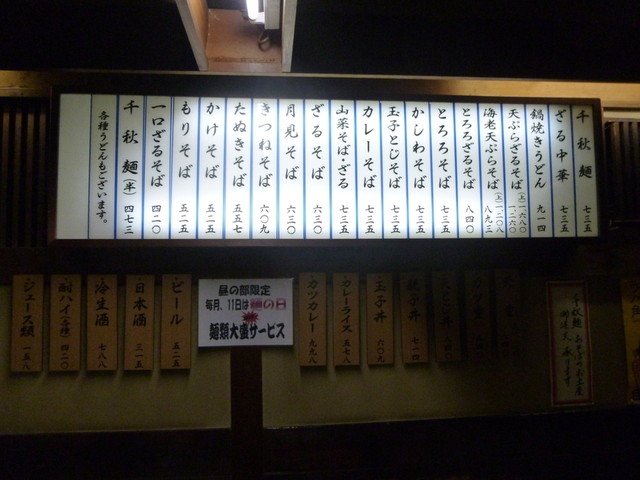 千秋麺 七三五
ざる中華 七三五
鍋焼きうどん 九一四
天ぷらざるそば (上)一六八〇 一二六〇
海老天ぷらそば (上)一二〇八 八九三
とろろざるそば 八四〇
とろろそば 七三五
かしわそば 七三五
玉子とじそば 七三五
カレーそば 七三五
山菜そば・ざる 七三五
ざるそば 六三〇
月見そば 六三〇
きつねそば 六〇九
たぬきそば 五五七
かけそば 五二五
もりそば 五二五
一口ざるそば 四二〇
千秋麺(半) 四七三
各種うどんもございます。
親子丼 七一四
玉子丼 六〇九
カレーライス 五七八
カツカレー 九九八
昼の部限定
毎月、11日は麺の日
麺類大盛サービス
ビール 五二五
日本酒 三一五
冷生酒 七八八
酎ハイ(各種) 四二〇
ジュース類 一五八